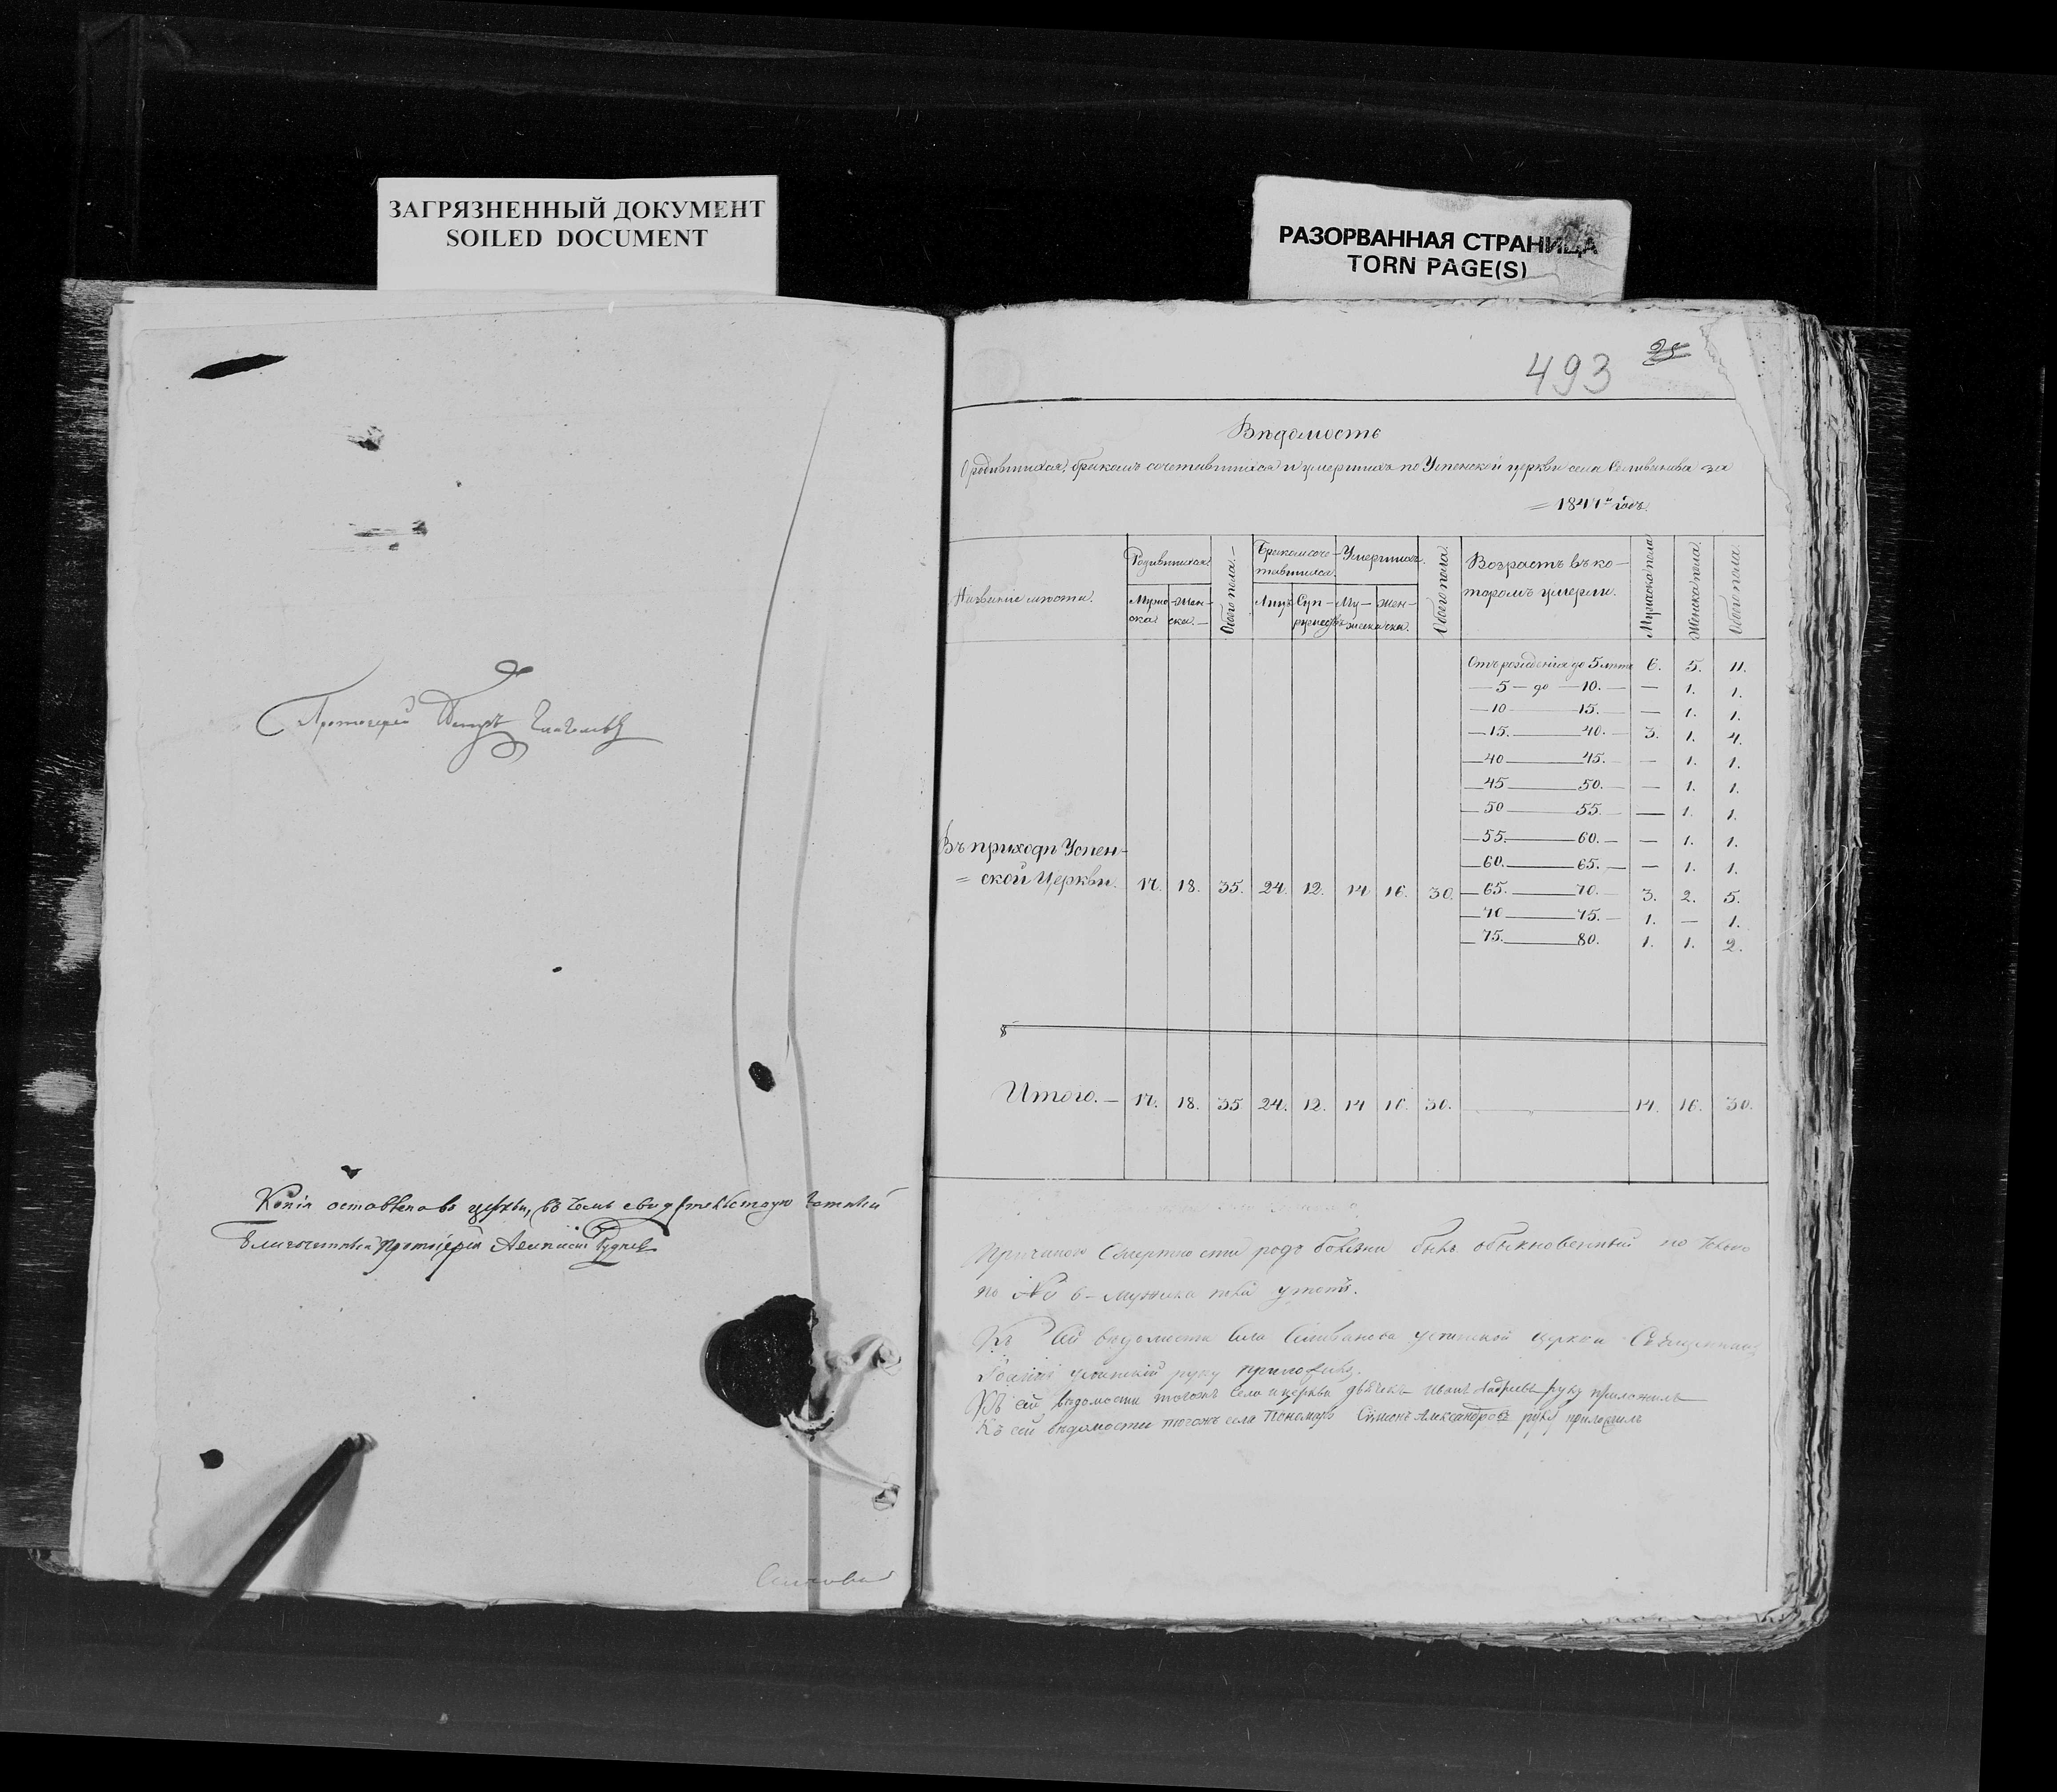 ЗАГРЯЗНЕННЫЙ ДОКУМЕНТ
SOILED DOCUMENT
Протоіерей Петръ
Копія оставлена въ церкви, въ чемъ свидѣтельствую
Благочинный Протоіерей Аѳанасій Рудневъ
РАЗОРВАННАЯ СТРАНИЦА
TORN PAGE(S)
493
Вѣдомость
О родившихся, бракомъ сочетавшихся и умершихъ по Успенской церкви села Селиванова за
= 1847й годъ.
Названіе мѣста. Родившихся. Мужеска. Женска. Обоего пола. Бракомъ сочетавшихся. Лицъ. Супружествъ. Умершихъ. Мужеска. Женска. Обоего пола. Возрастъ въ которомъ умерли. Мужеска пола. Женска пола. Обоего пола.
Отъ рожденія до 5 лѣтъ 6. 5. 11.
— 5 — до — 10. — — 1. 1.
— 10 — 15. — — 1. 1.
— 15. — 40. — 3. 1. 4.
— 40 — 45. — — 1. 1.
— 45 — 50. — — 1. 1.
— 50 — 55. — — 1. 1.
— 55. — 60. — — 1. 1.
— 60. — 65. — — 1. 1.
Въ приходѣ Успен-
= ской Церкви. 17. 18. 35. 24. 12. 14 16. 30. — 65. — 70. — 3. 2. 5.
— 70 — 75. — 1. — 1.
— 75. — 80. 1. 1. 2.
Итого. — 17. 18. 35 24. 12. 14 16. 30. — 14. 16. 30.
Причиною смертности родъ болѣзни былъ обыкновенный но только
по № 6 — мужеска пола утопъ.
Къ сей вѣдомости села Селиванова Успенской церкви Священникъ
Іоаннъ Успенскій руку приложилъ.
Къ сей вѣдомости тогожъ села и церкви дьячекъ Иванъ Андреевъ руку приложилъ
Къ сей вѣдомости тогожъ села Пономарь Симонъ Александровъ руку приложилъ